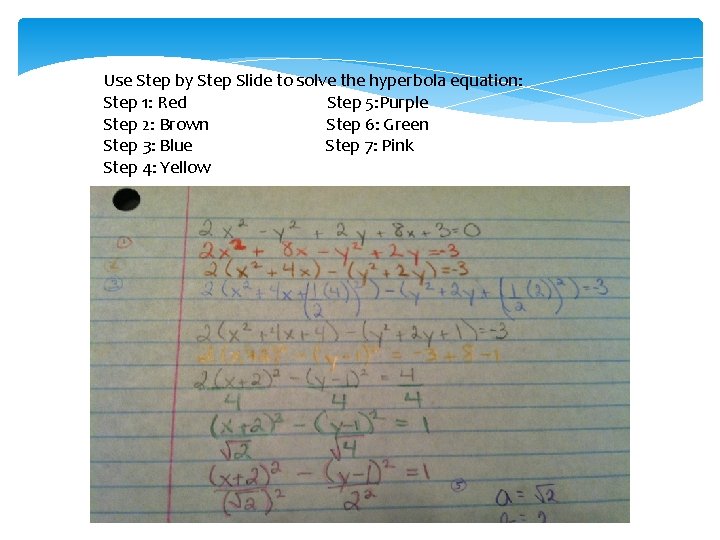 Use Step by Step Slide to solve the hyperbola equation:
Step 1: Red Step 5:Purple
Step 2: Brown Step 6: Green
Step 3: Blue Step 7: Pink
Step 4: Yellow
2x² - y² + 2y + 8x + 3 = 0
① 2x² + 8x - y² + 2y = -3
2(x² + 4x) - (y² + 2y) = -3
③ 2(x² + 4x + (1/2(4))²) - (y² + 2y + (1/2(2))²) = -3
2(x² + 4x + 4) - (y² + 2y + 1) = -3
- (y-1)² = -3 + 8 - 1
2(x+2)²/4 - (y-1)²/4 = 4/4
(x+2)²/√2 - (y-1)²/√4 = 1
(x+2)²/(√2)² - (y-1)²/2² = 1
⑤ a = √2